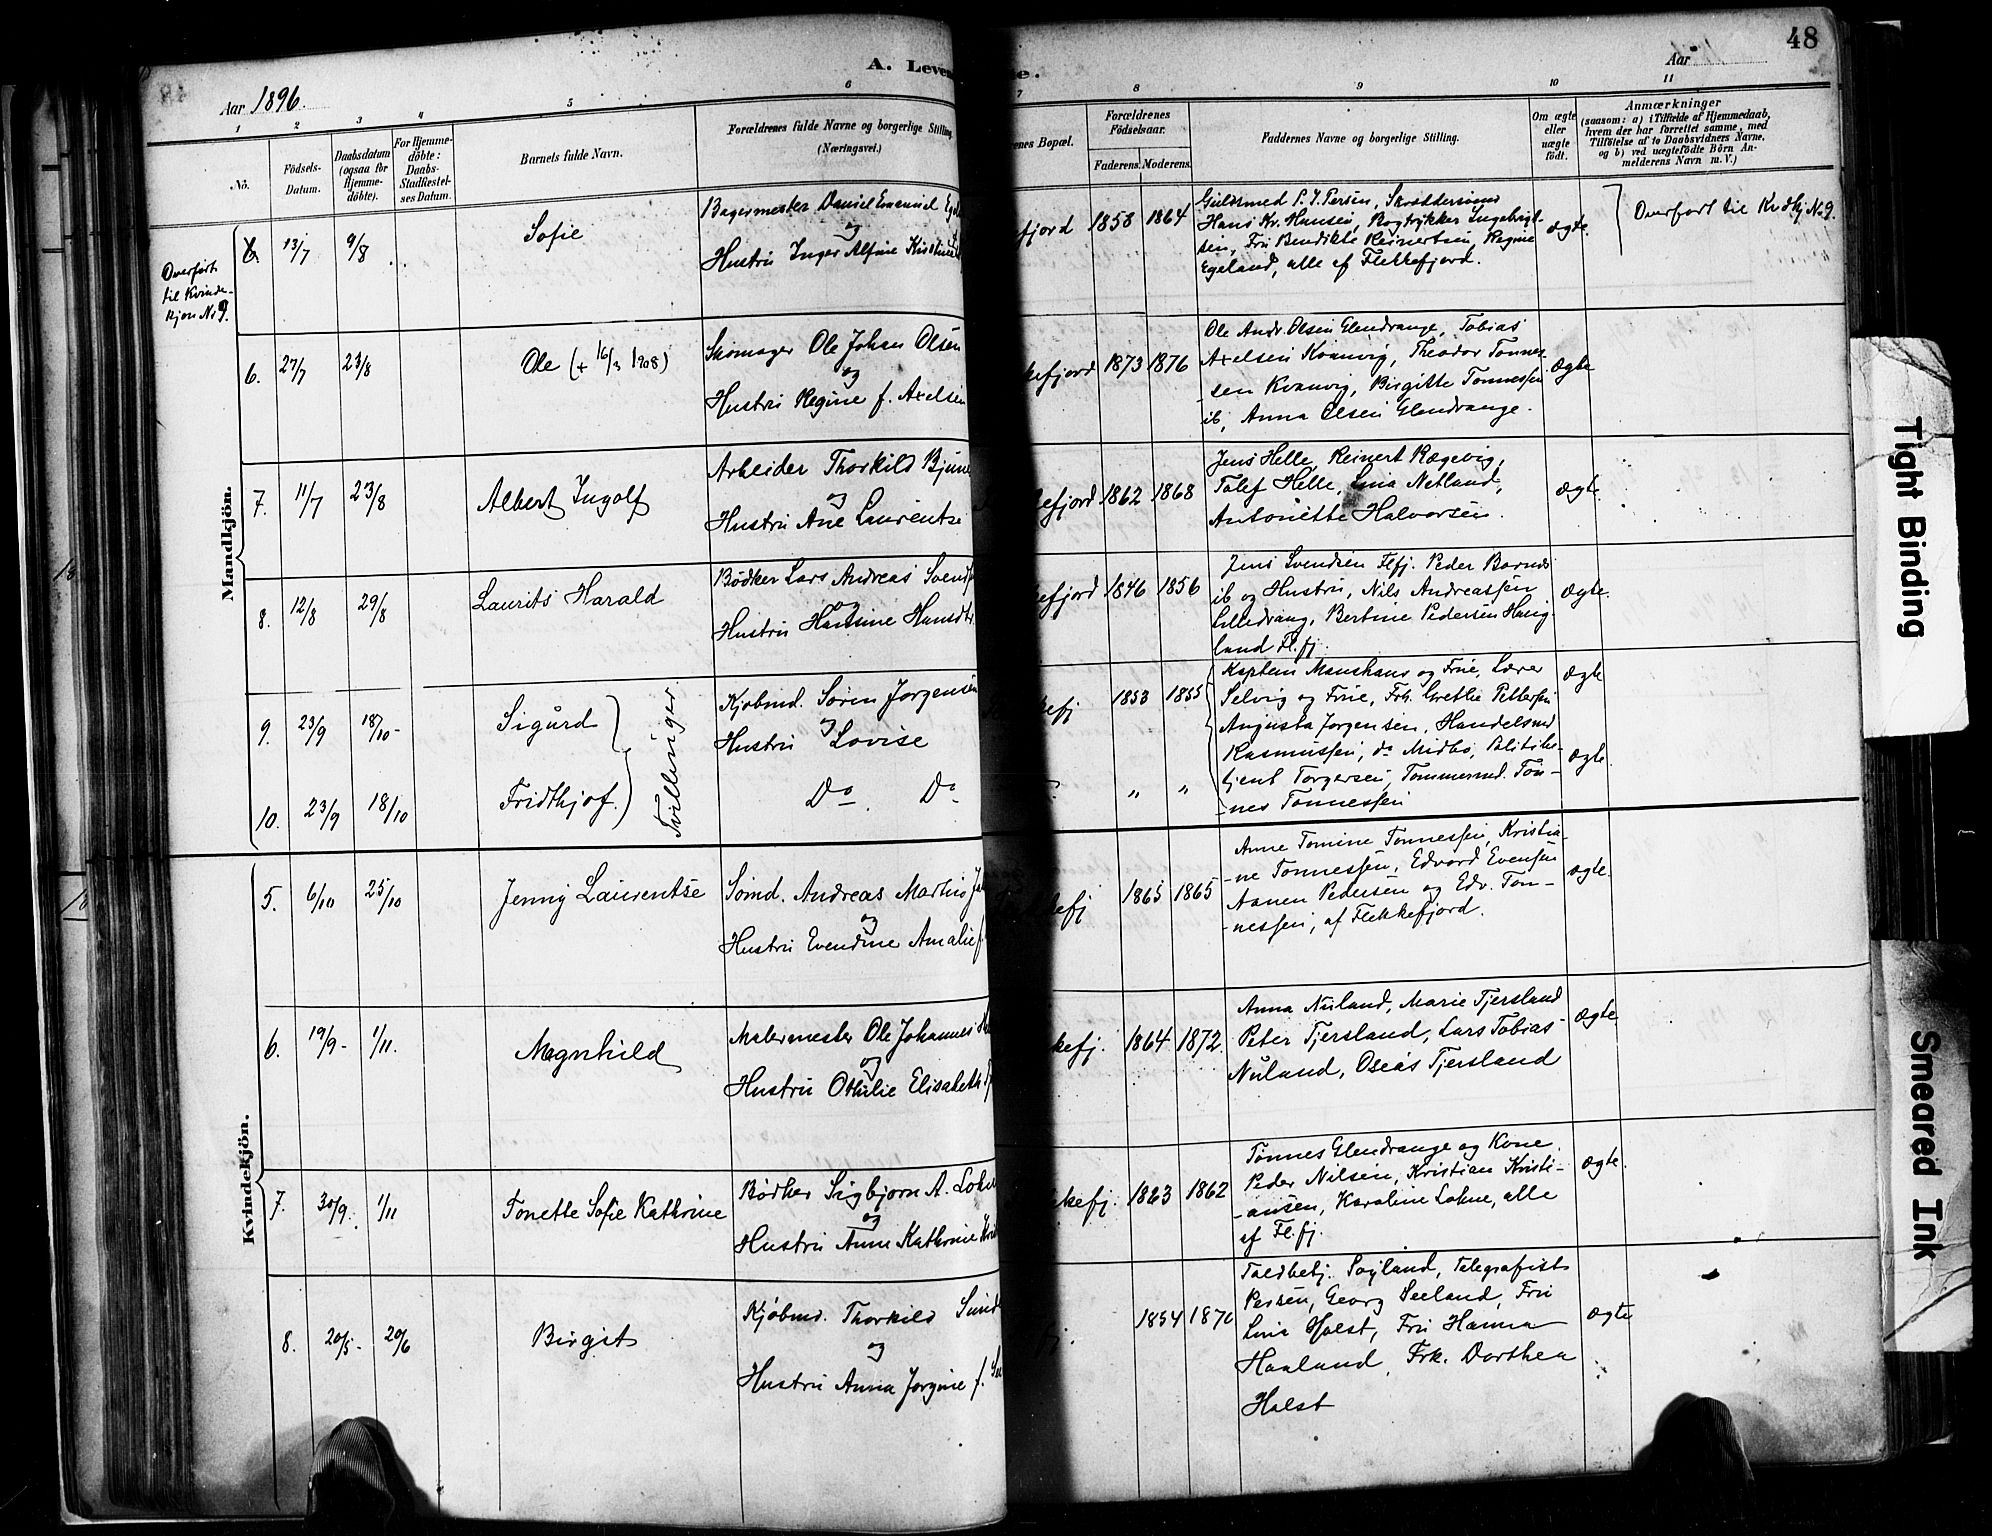 48
A. Leven
Aar 1896.
Aar
1 2 3 4 5 6 7 8 9 10 11
No.
Födsels-
Datum.
Daabsdatum
(ogsaa for
Hjemme-
döbte).
For Hjemme-
döbte:
Daabs-
Stadfæstel-
ses Datum.
Barnets fulde Navn.
Forældrenes fulde Navne og borgerlige Stilling
(Næringsvei.)
enes Bopæl.
Forældrenes
Födselsaar.
Faderens. Moderens.
Faddernes Navne og borgerlige Stilling.
Om ægte
eller
uægte
födt.
Anmærkninger
(saasom: a) i Tilfælde af Hjemmedaab,
hvem der har forrettet samme, med
Tilföielse af to Daabsvidners Navne,
og b) ved uægtefödte Börn An-
melderens Navn m. V.)
Mandkjön.
Overført
til Kvinde-
kjøn No 9.
13/7 9/8 Sofie
Bagermester Daniel Emanuel Eg
og
Hustru Inger Alfine Kristine
fjord 1858 1864
Guldsmed P. J. Persen, Skræddersvend
Hans Kr. Hansen, Bogtrykker Ingebrigt-
sen, Fru Bendikte Reinertsen, Regine
Egeland, alle af Flekkefjord.
ægte
Overført til Kvdkj No 9.
6. 27/7 23/8 Ole (+ 16/3 1908)
Skomager Ole Johan Olsen
og
Hustru Regine f. Axelsen
kefjord 1873 1876
Ole Andr. Olsen Glendrange, Tobias
Axelsen Kvanvig, Theodor Tønnes-
sen Kvanvig, Birgitte Tønnessen
ib, Anna Olsen Glendrange.
Ægte
7. 11/7 23/8 Albert Ingolf
Arbeider Thorkild Bjunes
og
Hustru Ane Laurentse
efjord 1862 1868
Jens Helle, Reinert Rægevig,
Talef Helle, Lina Netland,
Antonette Halvorsen.
ægte.
8. 12/8 29/8 Laurits Harald
Bødker Lars Andreas Svends
og
Hustru Hansine Hansdtr
efjord 1846 1856
Jens Svendsen Flfj. Peder
ib og Hustru, Nils Andreassen
Lilledrang, Bertine Pedersen Haug-
land Fl.fj.
Ægte.
9. 23/9 18/10 Sigurd
Kjøbmd. Søren Jørgensen
og
Hustru Lovise
kefj 1853 1855
Kaptein Manshaus og Frue, Lærer
Selvig og Frue, Frk. Grethe Pettersen
Augusta Jørgensen, Handelsmd
Rasmussen, do Midbø, Politibe-
tjent Torgersen, Tømmermd. Tøn-
nes Tønnessen
Ægte
10. 23/9 18/10 Fridthjof.
Tvillinger
Do Do
" "
Ægte.
Kvindekjön.
5. 6/10 25/10 Jenny Laurentse
Sømd. Andreas Martin
og
Hustru Evendine Amalie f.
kefj 1865 1865
Anne Tomine Tønnessen, Kristia-
ne Tønnessen, Edvard Evensen
Aanen Pedersen og Edv. Tøn-
nessen, af Flekkefjord.
ægte.
6. 19/9 1/11. Magnhild
Malermester Ole Johannes
og
Hustru Othilie Elisabeth
kefj. 1864 1872
Anna Nuland, Marie Tjersland
Peter Tjersland, Lars Tobias
Nuland, Oseas Tjersland
Ægte
7. 30/9. 1/11 Tonette Sofie Kathrine
Bødker Sigbjørn A. Lohne
og
Hustru Anne Kathrine
kefj. 1863 1862
Tønnes Glendrange og Kone
Peder Nilsen, Kristian Kristi-
ansen, Karoline Lohne, alle
af Fl.fj.
Ægte.
8. 20/5 20/6 Birgit
Kjøbmd. Thorkild Sund
og
Hustru Anna Jørgine f.
1854 1870
Toldbetj. Søyland, Telegrafist
Persen, Georg Seeland, Fru
Lina Holst, Fru Hanna
Haaland, Frk. Dorthea
Holst
Ægte
Tight Binding
Smeared Ink